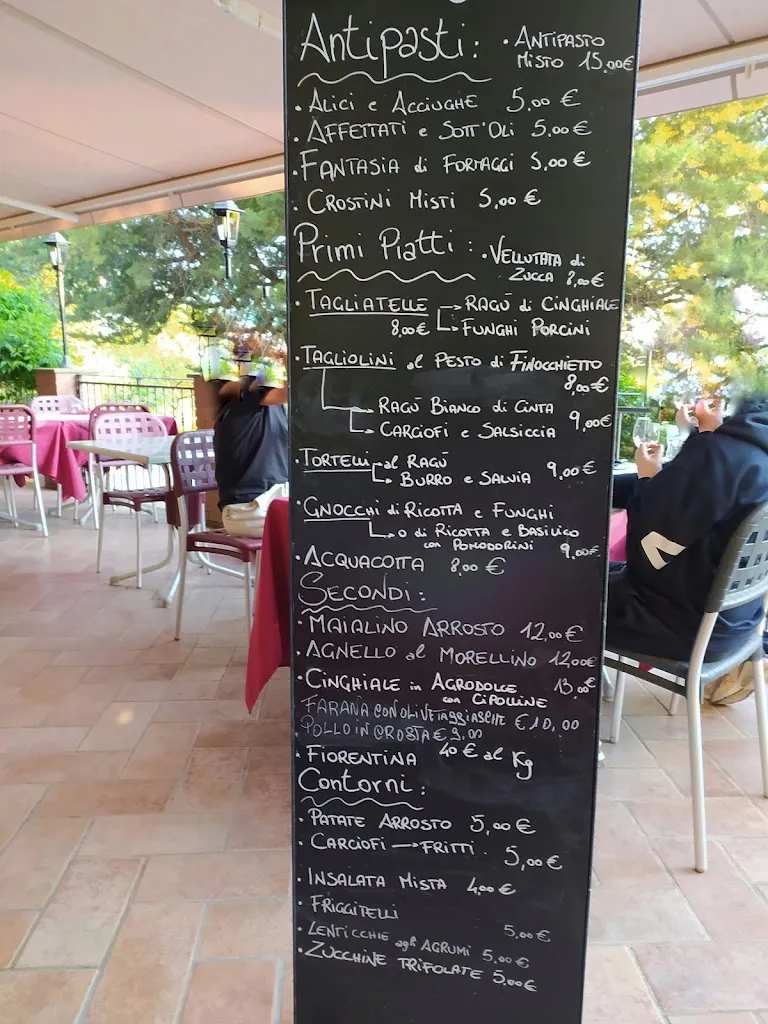 Antipasti:
• ANTIPASTO
MISTO 15,00€
• ALICI e ACCIUGHE 5,00 €
• AFFETTATI e SOTT'OLI 5,00 €
• FANTASIA di FORMAGGI 5,00 €
• CROSTINI MISTI 5,00 €
Primi Piatti:
• VELLUTATA di
ZUCCA 8,00€
• TAGLIATELLE RAGÙ di CINGHIALE
8,00€ FUNGHI PORCINI
• TAGLIOLINI al PESTO di FINOCCHIETTO
8,00€
RAGÙ BIANCO di CINTA
CARCIOFI e SALSICCIA 9,00€
• TORTELLI al RAGÙ
BURRO e SALVIA 9,00€
• GNOCCHI di RICOTTA e FUNGHI
o di RICOTTA e BASILICO
con POMODORINI 9,00€
• ACQUACOTTA 8,00 €
SECONDI:
• MAIALINO ARROSTO 12,00€
• AGNELLO al MORELLINO 12,00€
• CINGHIALE in AGRODOLCE 13,00€
con CIPOLLINE
FARAONA CON OLIVE TAGGIASCHE €10,00
• POLLO IN CROSTA € 9,00
FIORENTINA 40 € al Kg
Contorni:
• PATATE ARROSTO 5,00 €
• CARCIOFI → FRITTI. 5,00 €
• INSALATA MISTA 4,00 €
• FRIGGITELLI 5,00 €
• LENTICCHIE agli AGRUMI 5,00 €
• ZUCCHINE TRIFOLATE 5,00€